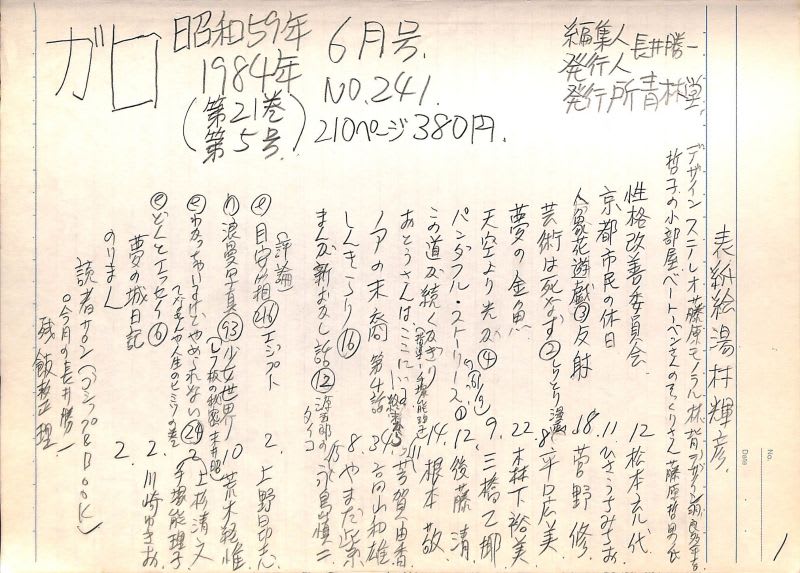 ガロ
昭和59年
1984年
(第21巻
第5号)
6月号.
NO.241.
210ページ 380円.
編集人 長井勝一
発行人
発行所 青林堂.
No.
Date
表紙絵 湯村輝彦.
デザイン ステレオ 藤原モノラル 林
哲子の小部屋 ベートーベンさんのそっくりさん 藤原哲男氏
性格改善委員会. 12 松本充代
京都市民の休日 11 ひさうちみちお
人象花遊戯③ 反射 18. 菅野 修
芸術は死なず② しりとり漫 8 平口広美
夢の金魚 22 森下裕美
天空より光が④ 9. 三橋乙揶
パンダフル・ストーリーズ① 12. 後藤 清
この道が続くかぎり 14. 根本 敬
あとうさんはここにいます 芳賀由香
ノアの末裔 第4話 34 高山和雄
しんきろり⑯ 8 やまだ紫
まんが新おとし話⑫ 源五郎のタイコ 15 永島慎二
(評論)
目安箱㊻ エジプト 2. 上野昂志
浪曼写真(93) 少女世界! 10 荒木経惟
わかっちゃいるけどやめられない㉔ 2 上杉清文
どんとエッセイ⑥ てんもんや人生のヒミツの巻 2 手塚能理子
夢の城日記 2. 川崎ゆきお
のりまん 2.
読者サロン(ゴシップ&BOOK)
○今月の長井勝一
残飯整理
1